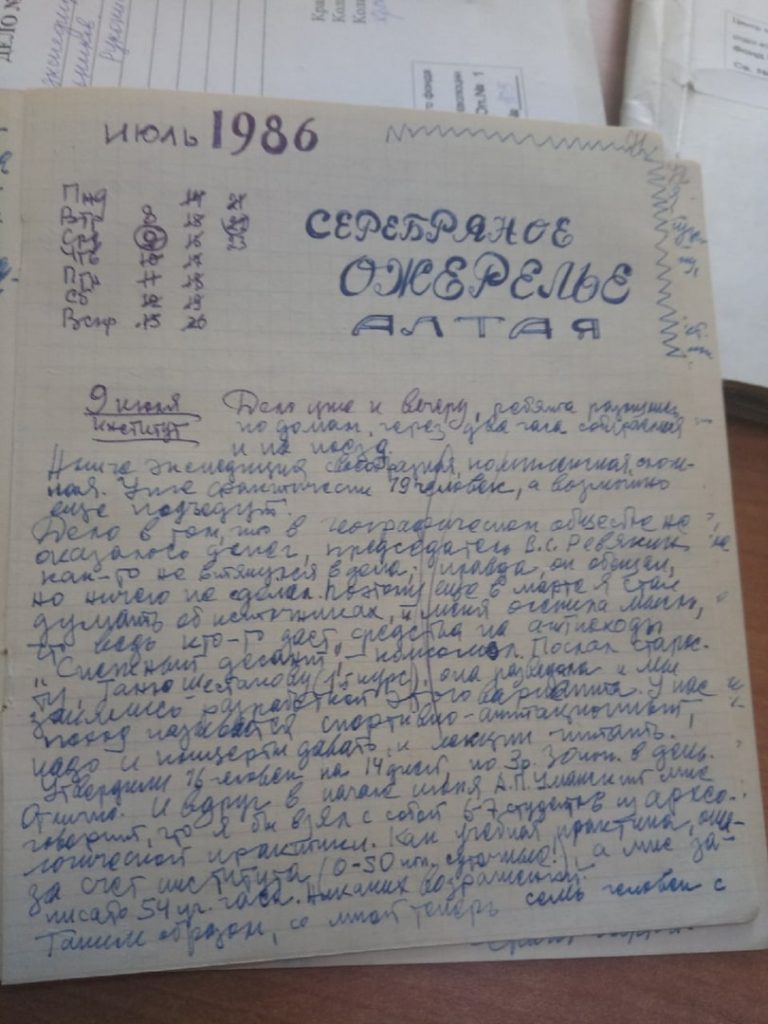 ДЕЛО №
Оп. № 1
ИЮЛЬ 1986
СЕРЕБРЯНОЕ
ОЖЕРЕЛЬЕ
АЛТАЯ
9 июля
институт
Дело уже к вечеру, ребята
по домам, через два часа собираемся
и на поезд.
Нынче экспедиция своеобразная, комплексная, слож-
ная. Уже фактически 19 человек, а возможно
еще подъедут.
Дело в том, что в географическом обществе не
оказалось денег, председатель В.С. Ревякин
как-то не втянулся в дела; правда, он обещал,
но ничего не сделал. Поэтому еще в марте я стал
думать об источниках, и меня осенила мысль,
что ведь кто-то дает средства на агитпоходы
"Снежный десант", – комсомол. Послал старос-
ту, Таню Шестакову (1 курс), она разведала и мы
занялись разработкой этого варианта. У нас
поход называется спортивно-агитационный,
надо и концерты давать, и лекции читать.
Утвердили 16 человек на 14 дней, по 3р. 30коп. в день.
Отлично. И вдруг в начале июня А.П. Уманский мне
говорит, что я бы взял с собой 6-7 студентов из архео-
логической практики. Как учебная практика,
за счет института (0-50 коп. суточные!), а мне за-
писать 54 уч. часа. Никаких возражений.
Таким образом, со мной теперь семь человек с